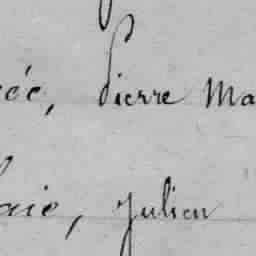 ée, Pierre Ma
rie, Julien